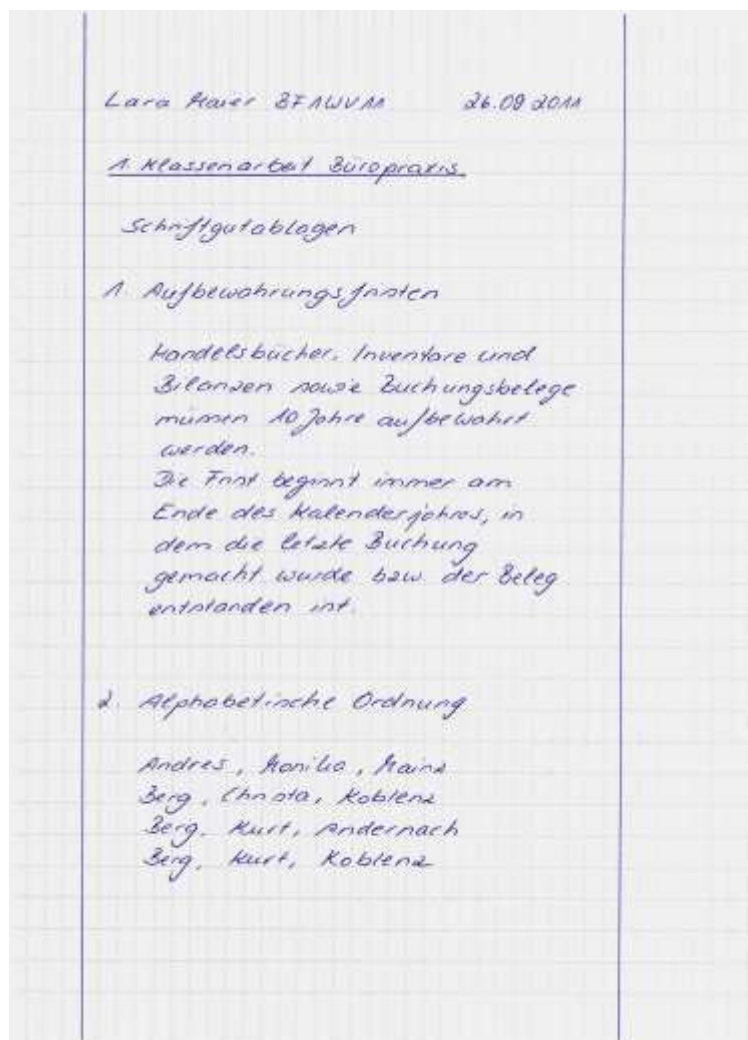 Lara Maier BF1WVM 26.09 2011
1. Klassenarbeit Büropraxis
Schriftgutablagen
1. Aufbewahrungsfristen
Handelsbücher, Inventare und
Bilanzen sowie Buchungsbelege
müssen 10 Jahre aufbewahrt
werden.
Die Frist beginnt immer am
Ende des Kalenderjahres, in
dem die letzte Buchung
gemacht wurde bzw. der Beleg
entstanden ist.
2. Alphabetische Ordnung
Andres, Monika, Mainz
Berg, Christa, Koblenz
Berg, Kurt, Andernach
Berg, Kurt, Koblenz